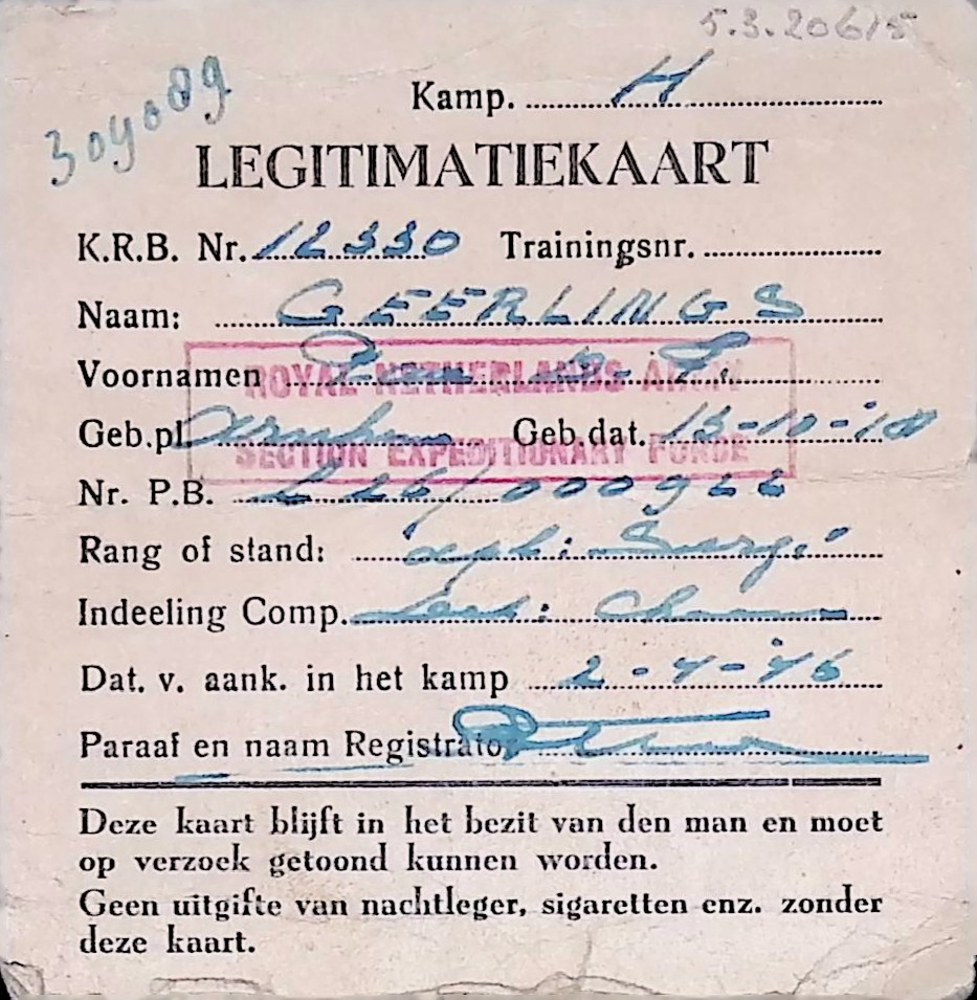 5.3.20615
309089
Kamp. H
LEGITIMATIEKAART
K.R.B. Nr. 12330 Trainingsnr.
Naam: GEERLINGS
Voornamen
ROYAL NETHERLANDS ARMY
Geb.pl Arnhem Geb.dat. 13-10-18
SECTION EXPEDITIONARY FORCE
Nr. P.B.
Rang of stand:
Indeeling Comp.
Dat. v. aank. in het kamp 2-4-46
Paraaf en naam Registrator
Deze kaart blijft in het bezit van den man en moet
op verzoek getoond kunnen worden.
Geen uitgifte van nachtleger, sigaretten enz. zonder
deze kaart.